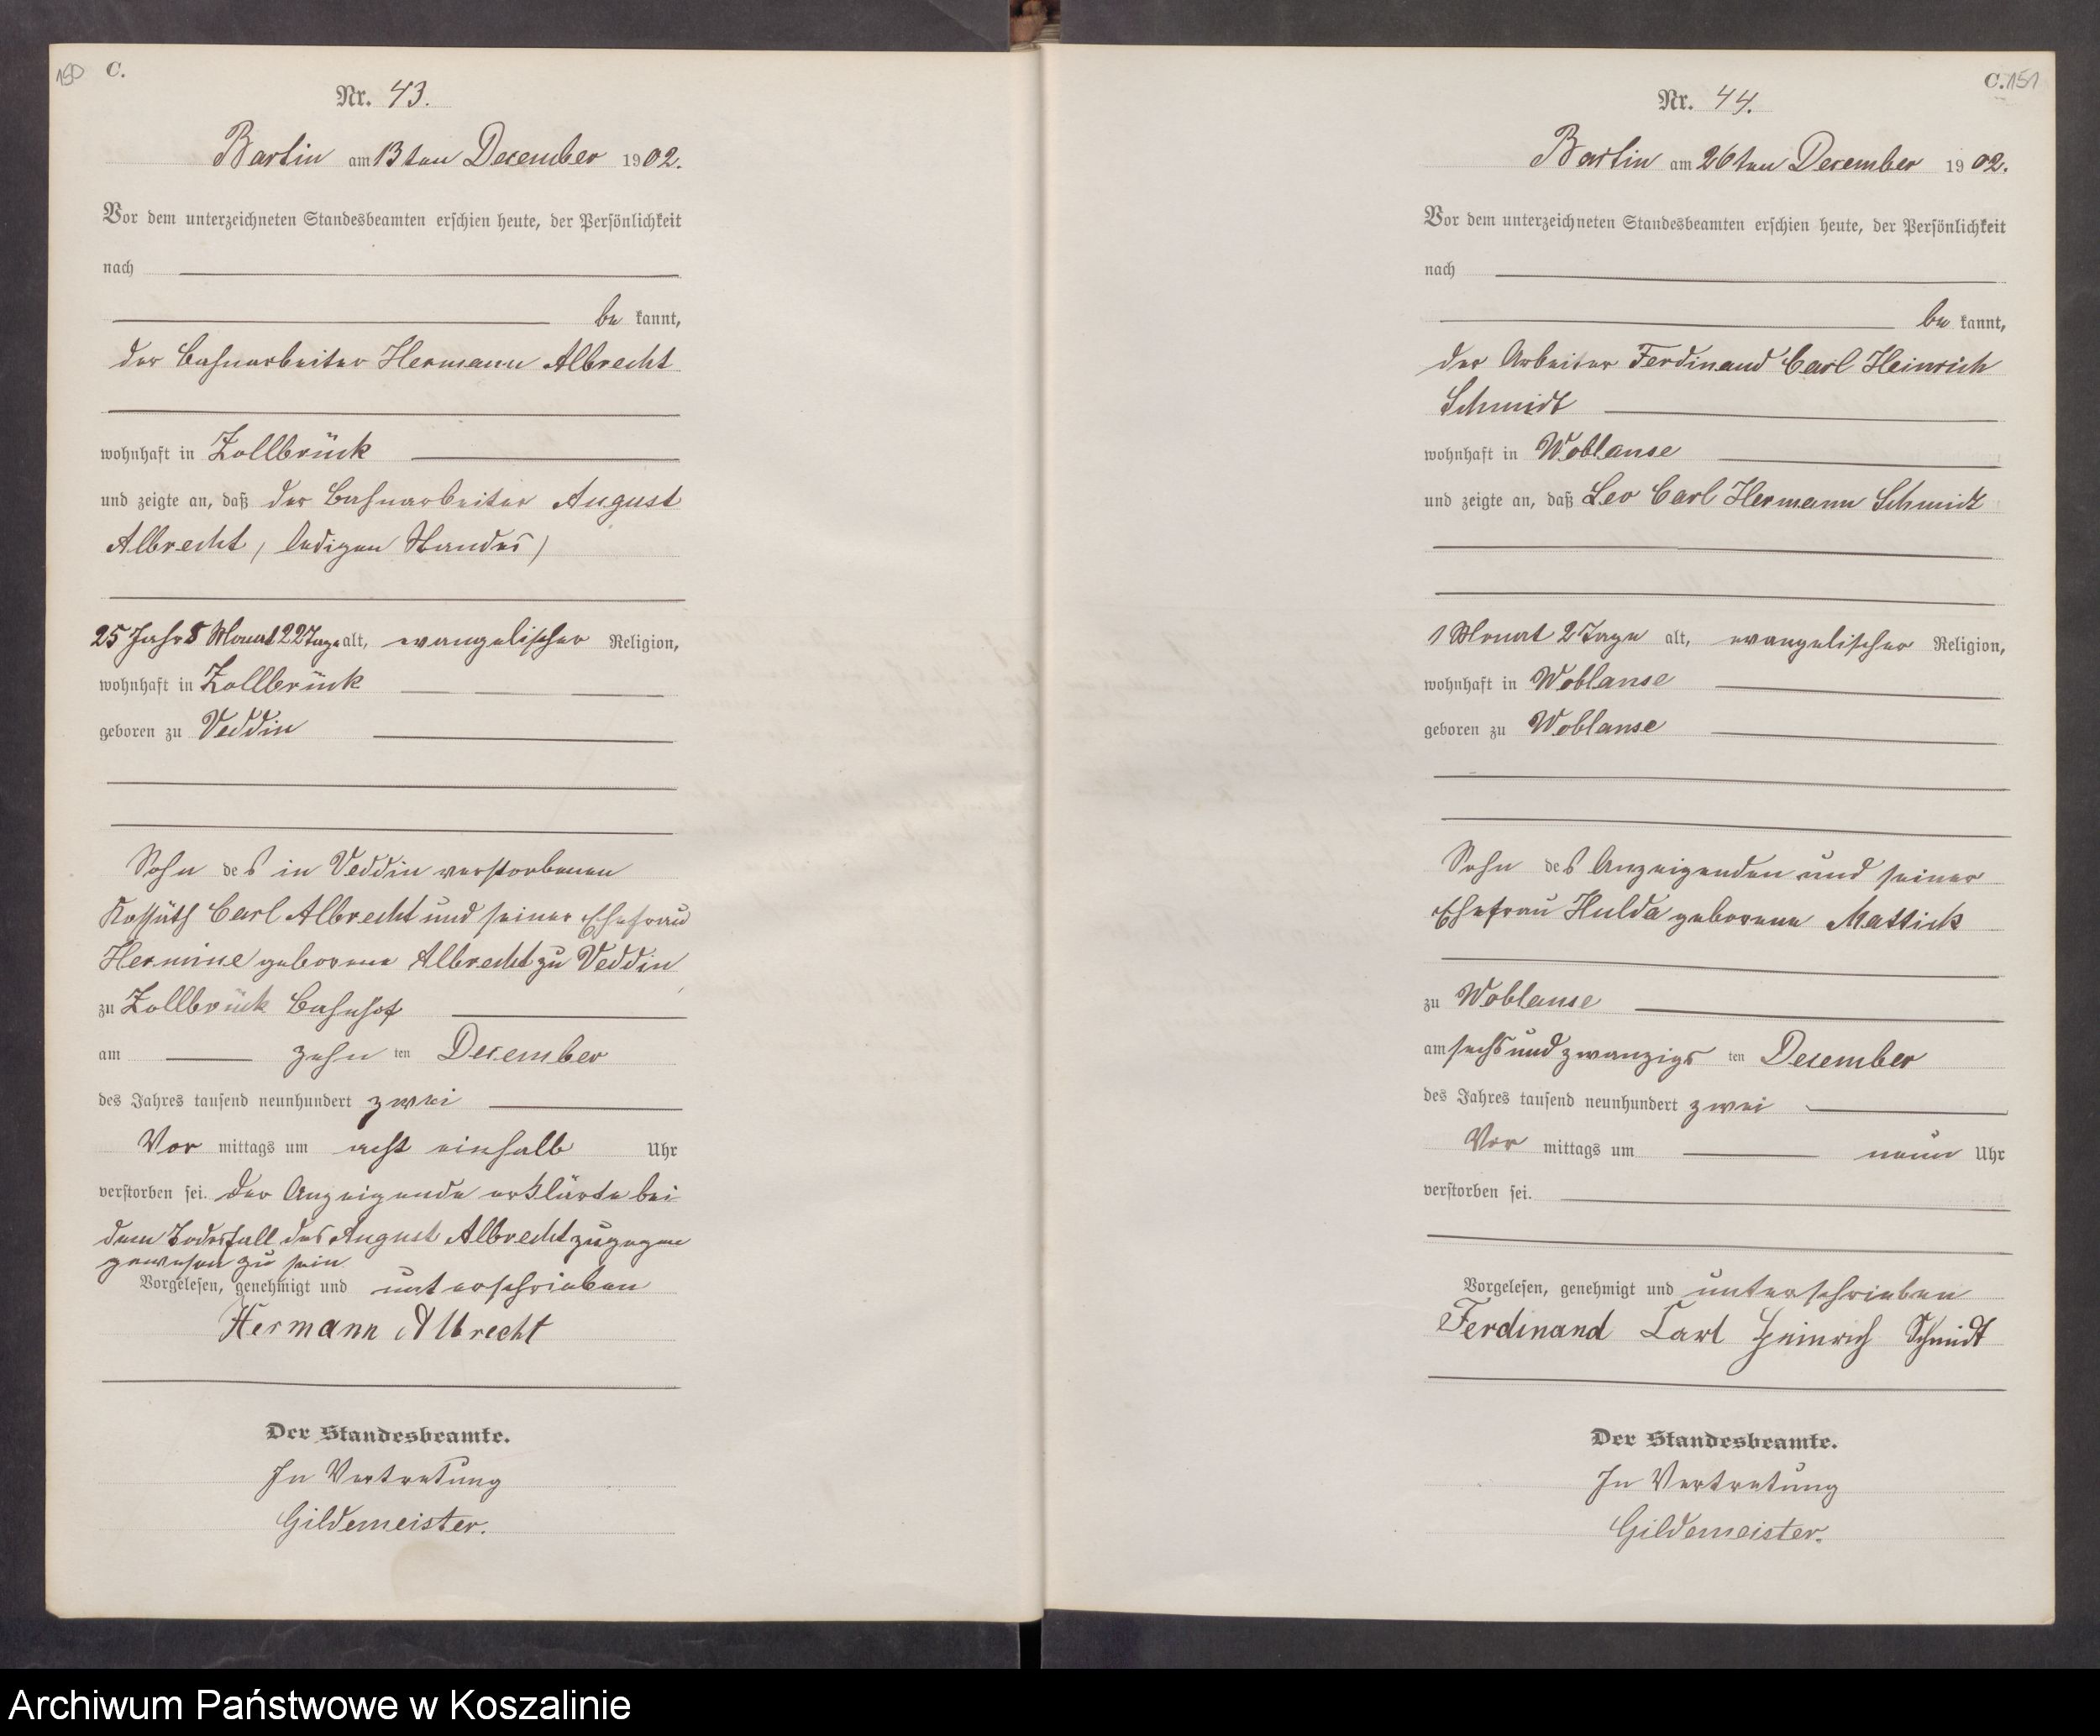 150
C.
Nr. 43.
Bartin am 13ten December 1902.
Vor dem unterzeichneten Standesbeamten erschien heute, der Persönlichkeit
nach
be kannt,
der Bahnarbeiter Hermann Albrecht
wohnhaft in Zollbrück
und zeigte an, daß der Bahnarbeiter August
Albrecht, (ledigen Standes)
25 Jahr 8 Monat 22 Tage alt, evangelischer Religion,
wohnhaft in Zollbrück
geboren zu Veddin
Sohn des in Veddin verstorbenen
Carl Albrecht und seiner Ehefrau
Hermine geborene Albrecht zu Veddin
zu Zollbrück Bahnhof
am zehn ten December
des Jahres tausend neunhundert zwei
Vor mittags um acht einhalb Uhr
verstorben sei. Der Anzeigende erklärte bei
dem Todesfall des August Albrecht zugegen
gewesen zu sein.
Vorgelesen, genehmigt und unterschrieben
Hermann Albrecht
Der Standesbeamte.
In Vertretung
Gildemeister.
C. 151
Nr. 44.
Bartin am 26ten December 1902.
Vor dem unterzeichneten Standesbeamten erschien heute, der Persönlichkeit
nach
be kannt,
der Arbeiter Ferdinand Carl Heinrich
Schmidt
wohnhaft in Woblanse
und zeigte an, daß Leo Carl Hermann Schmidt
1 Monat 2 Tage alt, evangelischer Religion,
wohnhaft in Woblanse
geboren zu Woblanse
Sohn des Anzeigenden und seiner
Ehefrau Hulda geborene Mattick
zu Woblanse
am sechsundzwanzigs ten December
des Jahres tausend neunhundert zwei
Vor mittags um neun Uhr
verstorben sei.
Vorgelesen, genehmigt und unterschrieben
Ferdinand Carl Heinrich Schmidt
Der Standesbeamte.
In Vertretung
Gildemeister.
Archiwum Państwowe w Koszalinie